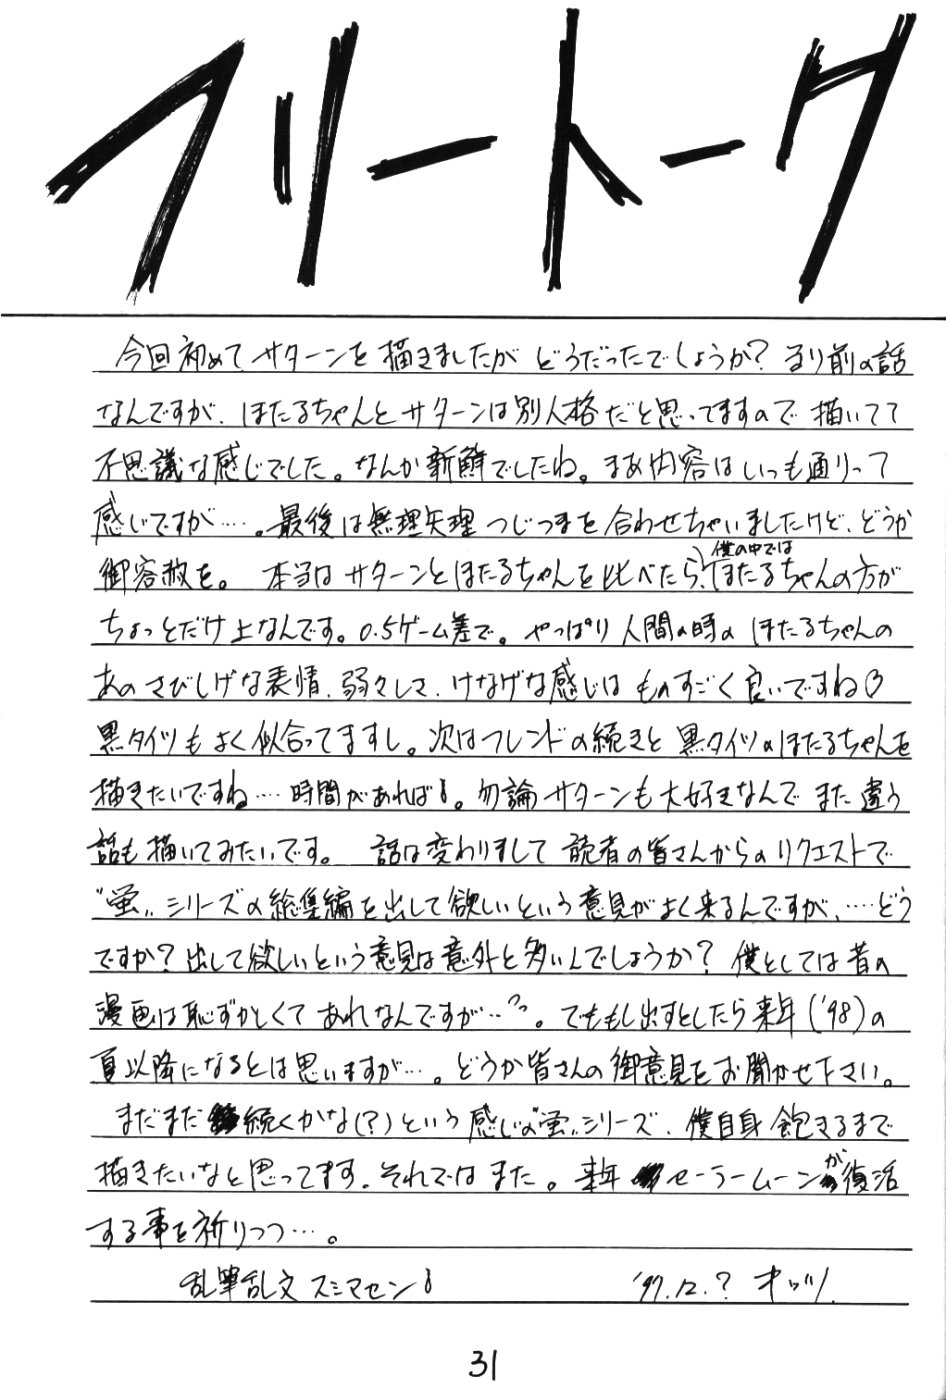 フリートーク
今回初めてサターンを描きましたがどうだったでしょうか?るり前の話
なんですが、ほたるちゃんとサターンは別人格だと思ってますので描いてて
不思議な感じでした。なんか新鮮でしたね。まあ内容はいつも通りって
感じですが‥‥。最後は無理矢理つじつまを合わせちゃいましたけど、どうか
御容赦を。 本当はサターンとほたるちゃんを比べたら、僕の中ではほたるちゃんの方が
ちょっとだけ上なんです。0.5ゲーム差で。やっぱり人間の時のほたるちゃんの
あのさびしげな表情、弱々しさ、けなげな感じはものすごく良いですね♡
黒タイツもよく似合ってますし。次はフレンドの続きと黒タイツのほたるちゃんを
描きたいですね‥‥時間があれば!。勿論サターンも大好きなんでまた違う
話も描いてみたいです。 話は変わりまして読者の皆さんからのリクエストで
〝蛍〟シリーズの総集編を出して欲しいという意見がよく来るんですが、‥‥どう
ですか?出して欲しいという意見は意外と多いんでしょうか?僕としては昔の
漫画は恥ずかしくてあれなんですが‥‥。でももし出すとしたら来年('98)の
夏以降になるとは思いますが‥‥。どうか皆さんの御意見をお聞かせ下さい。
まだまだ続くかな(?)という感じの〝蛍〟シリーズ、僕自身飽きるまで
描きたいなと思ってます。それではまた。来年セーラームーンが復活
する事を祈りつつ‥‥。
乱筆乱文スミマセン! '97.12.? オッツ
31